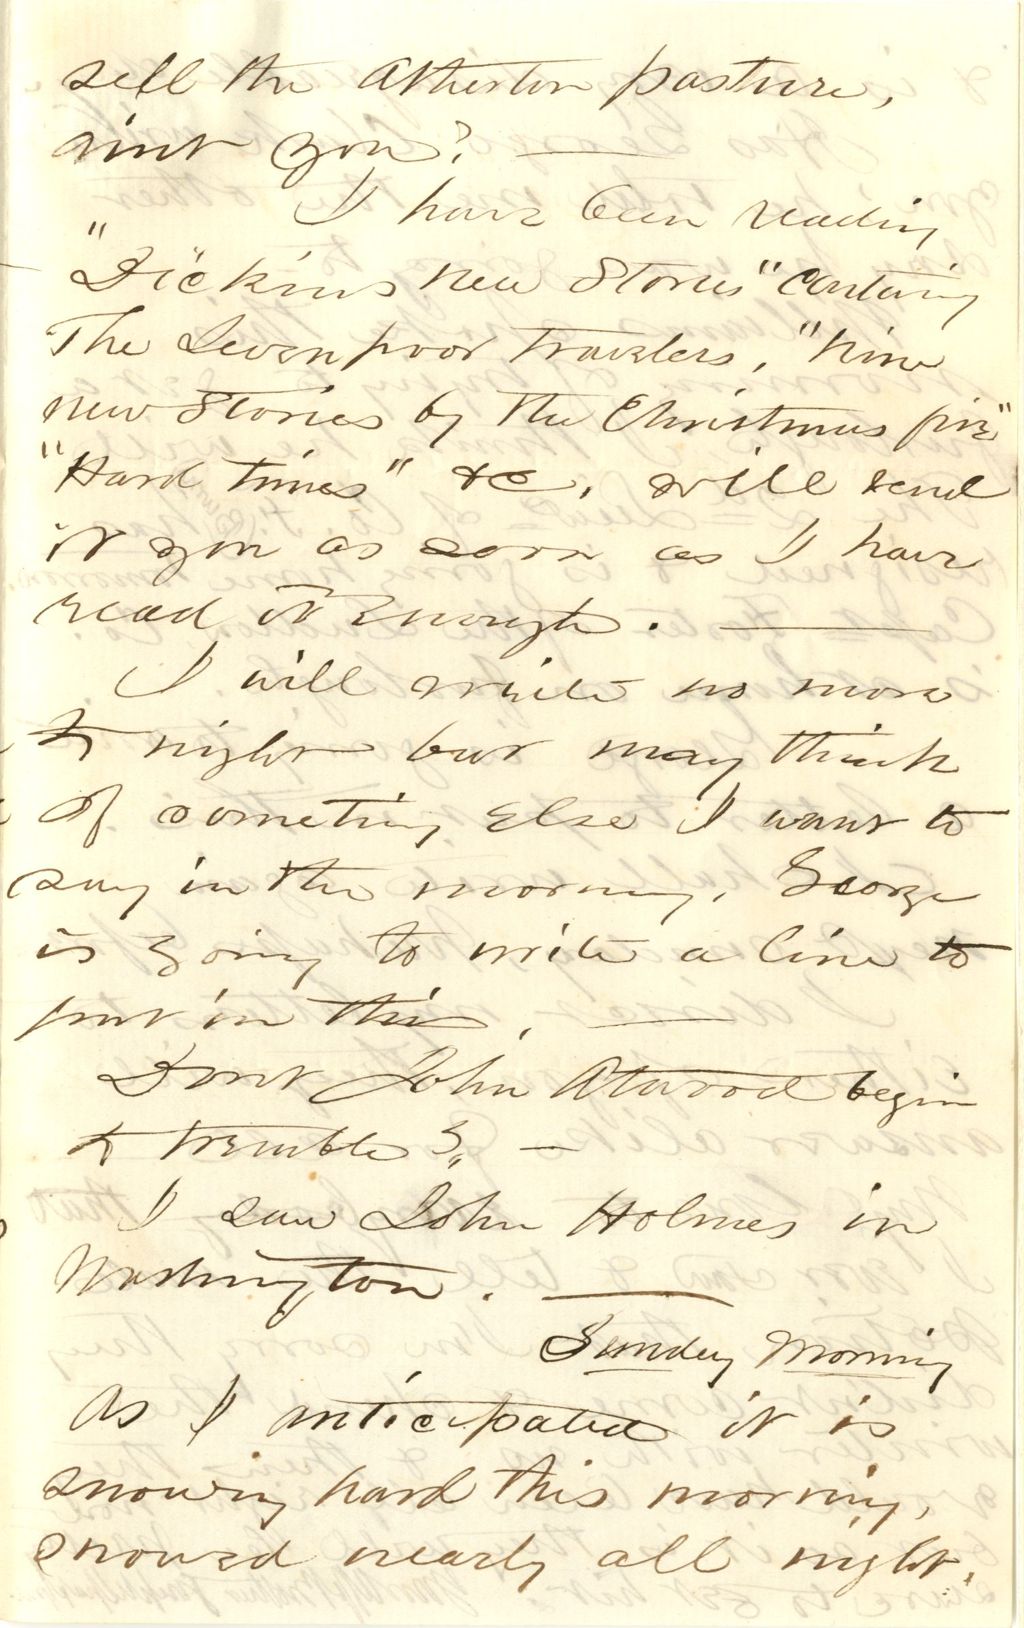 sell the Atherton pasture,
aint you? —
I have been reading
"Dickins new Stories" containing
The Seven poor travelers, "Nine
new Stories by the Christmas fire"
"Hard times" &c, will send
it you as soon as I have
read it enough. —
I will write no more
to night but may think
of someting else I want to
say in the morning. George
is going to write a line to
put in this. —
Dont John Atwood begin
to tremble? —
I saw John Holmes in
Washington. —
Sunday Morning
As I anticipated it is
snowing hard this morning,
snowed nearly all night.